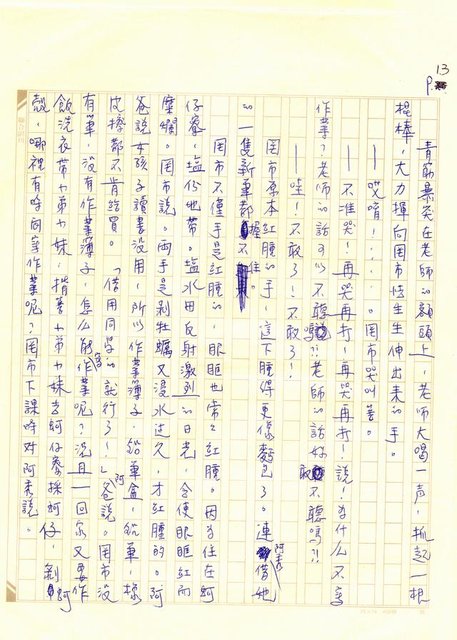 P. 13
青筋暴突在老師的額頭上，老師大喝一聲，抓起一根
棍棒，大力揮向罔市怯生生伸出來的手。
——哎唷！……罔市哭叫著。
——不准哭！再哭再打！再哭再打！說！為什么不寫
作業？老師的話可以不聽嗎？!老師的話好敢不聽嗎？!!
——哇！不敢了！不敢了！
罔市原本紅腫的手，這下腫得更像麵包了。連阿秀借她
的一隻新筆都握不住。
罔市不僅手是紅腫的，眼眶也常々紅腫。因為住在蚵
仔寮，塩份地帶。塩水田反射激烈的日光，会使眼眶紅而
糜爛。罔市說。両手是剝牡蠣又浸水过久，才紅腫的。阿
爸說女孩子讀書沒用，所以作業簿子、鉛筆盒、鉛筆、橡
皮擦都不肯給買。「借用同学的就行了！」阿爸說。罔市沒
有筆，沒有作業簿子，怎么能寫作業呢？況且一回家又要作
飯洗衣帶小弟小妹，揹著小弟小妹去蚵仔寮採蚵仔，剝蚵
殼，哪裡有時间寫作業呢？罔市下課時对阿秀說。